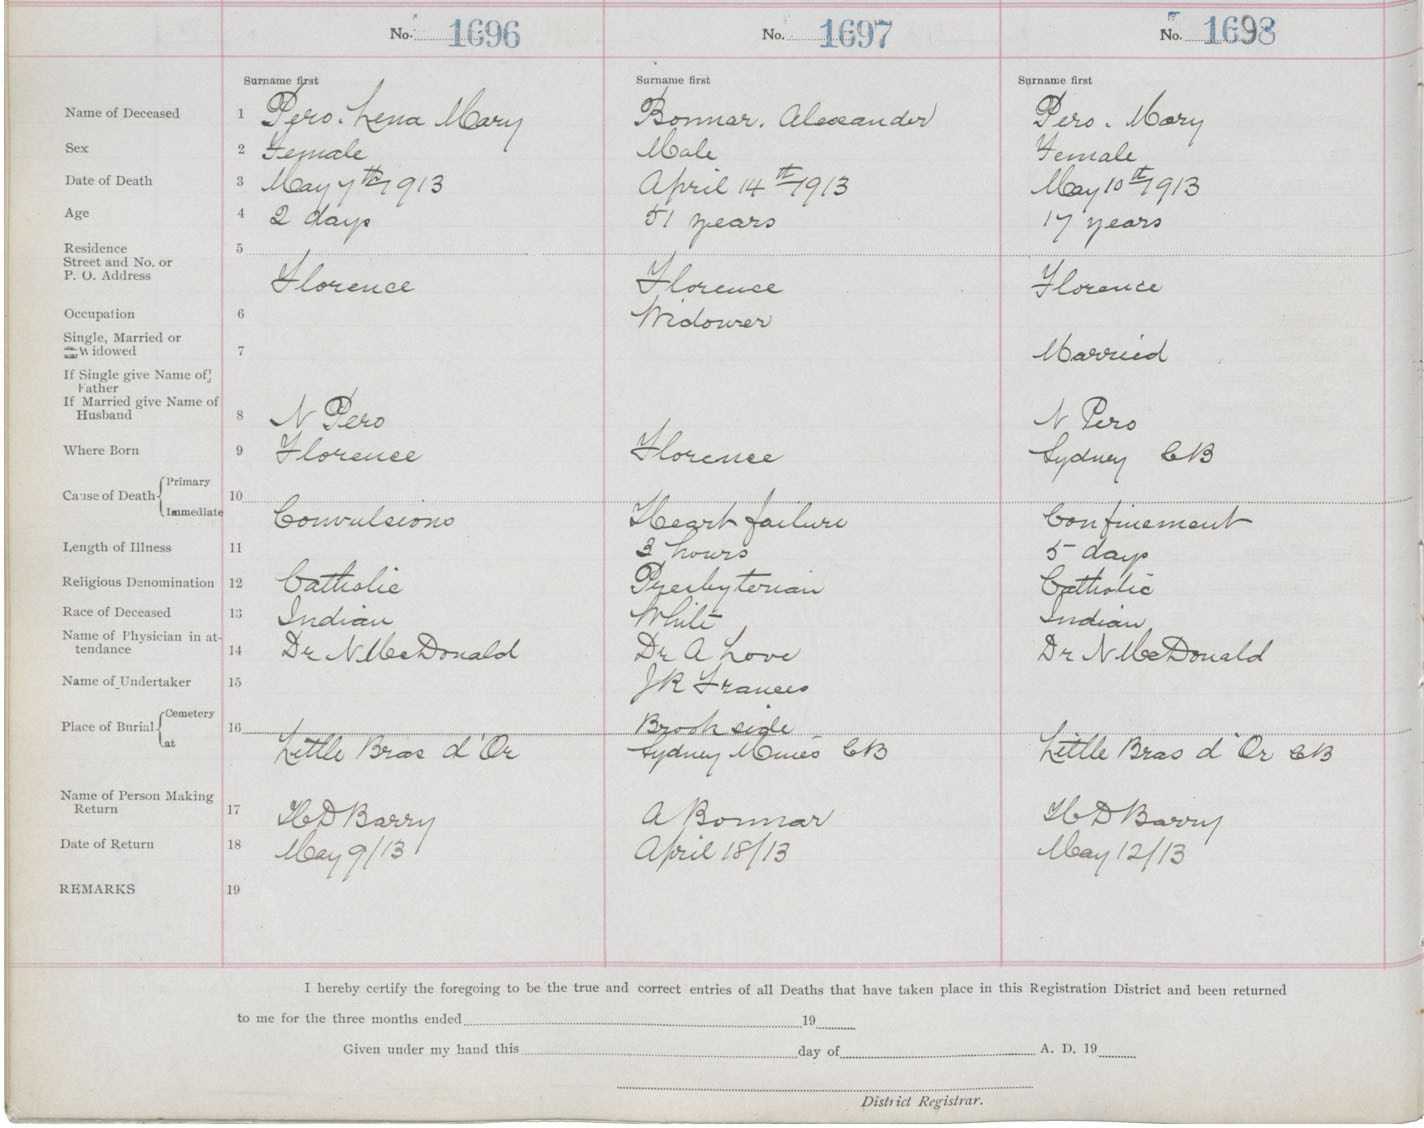 No. 1696 No. 1697 No. 1698
Surname first Surname first Surname first
Name of Deceased 1 Pero. Lena Mary Bonnar. Alexander Pero. Mary
Sex 2 Female Male Female
Date of Death 3 May 7th 1913 April 14th 1913 May 10th 1913
Age 4 2 days 51 years 17 years
Residence 5
Street and No. or
P. O. Address Florence Florence Florence
Occupation 6 Widower
Single, Married or
Widowed 7 Married
If Single give Name of
Father
If Married give Name of
Husband 8 N Pero N Pero
Where Born 9 Florence Florence Sydney CB
Cause of Death Primary 10
Immediate Convulsions Heart failure Confinement
Length of Illness 11 3 hours 5 days
Religious Denomination 12 Catholic Presbyterian Catholic
Race of Deceased 13 Indian White Indian
Name of Physician in at-
tendance 14 Dr N McDonald Dr A Love Dr N McDonald
Name of Undertaker 15 J R Frances
Place of Burial Cemetery 16 Brookside
at Little Bras d'Or Sydney Mines CB Little Bras d'Or CB
Name of Person Making
Return 17 H D Barry A Bonnar H D Barry
Date of Return 18 May 9/13 April 18/13 May 12/13
REMARKS 19
I hereby certify the foregoing to be the true and correct entries of all Deaths that have taken place in this Registration District and been returned
to me for the three months ended 19
Given under my hand this day of A. D. 19
District Registrar.